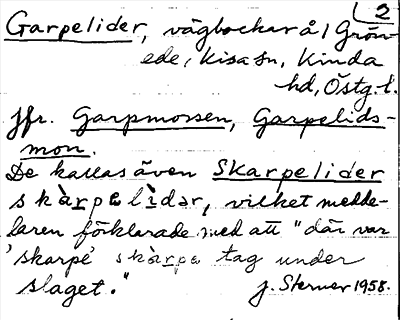 2
Garpelider, vägbockar å / Grön-
ede, Kisa sn, Kinda
hd, Östg. l.
Jfr. Garpmossen, Garpelids-
mon.
De kallas även Skarpelider
skàrpəlìdər, vilket medde-
laren förklarade med att "där var
'skarpe' skàrpə tag under
slaget."
J. Sterner 1958.